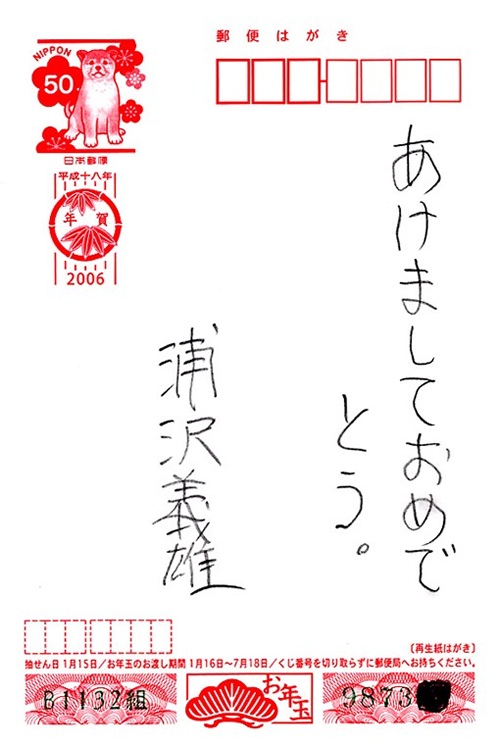 郵便はがき
NIPPON
50
日本郵便
平成十八年
年賀
2006
あけましておめで
とう。
浦沢義雄
〔再生紙はがき〕
抽せん日 1月15日/お年玉のお渡し期間 1月16日~7月18日/くじ番号を切り取らずに郵便局へお持ちください。
B1132組
お年玉
9873